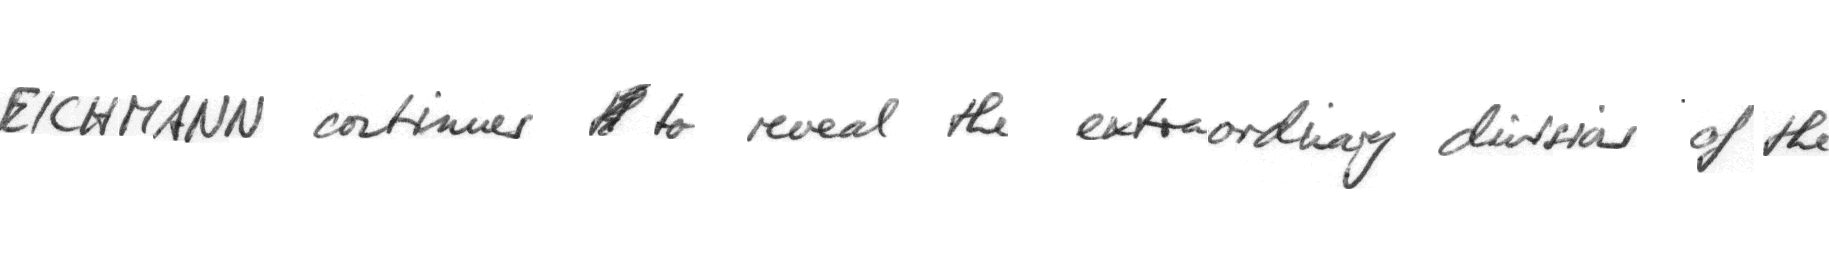 EICHMANN continues to reveal the extraordinary divisions of the